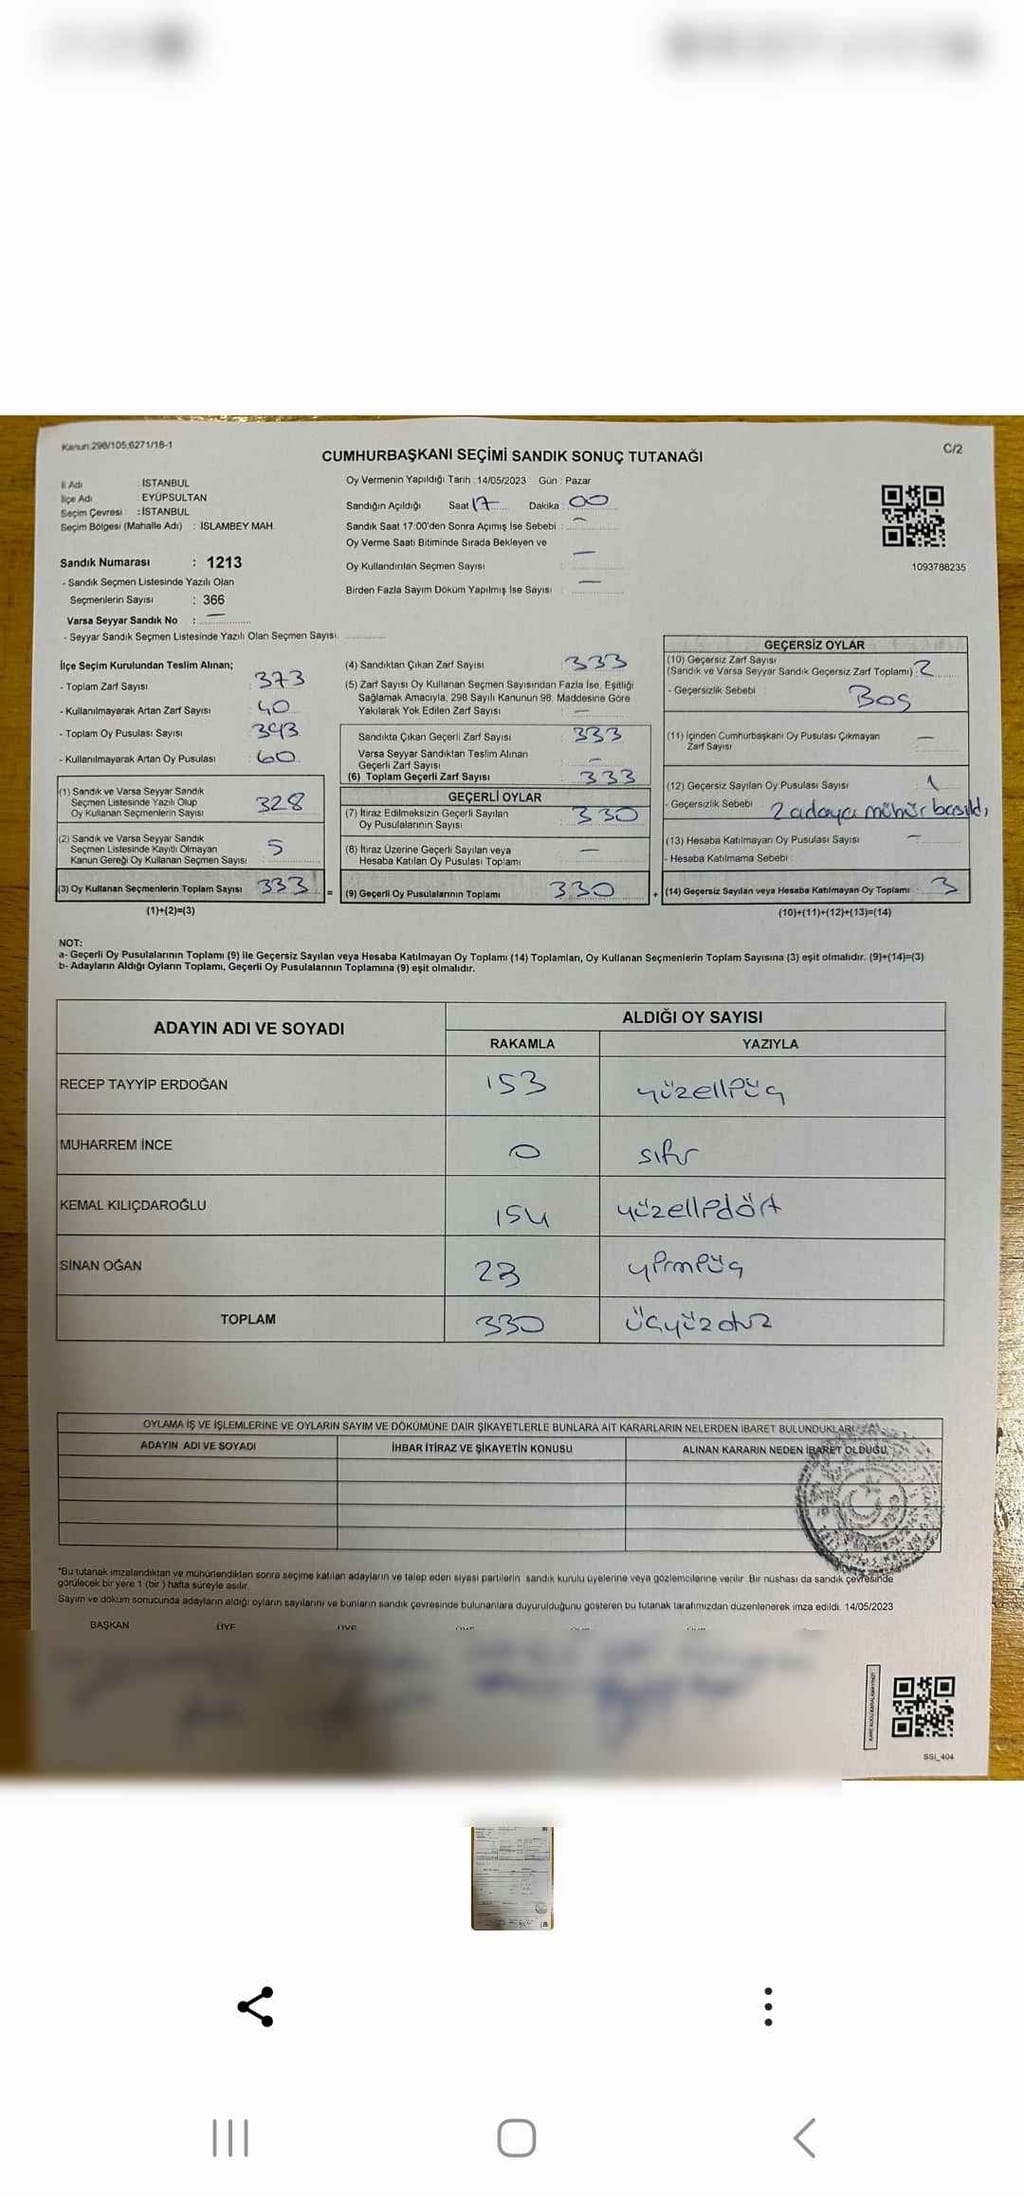 Kanun:298/105;6271/16-1
C/2
CUMHURBAŞKANI SEÇİMİ SANDIK SONUÇ TUTANAĞI
İl Adı : İSTANBUL
İlçe Adı : EYÜPSULTAN
Seçim Çevresi : İSTANBUL
Seçim Bölgesi (Mahalle Adı) : İSLAMBEY MAH.
Sandık Numarası : 1213
- Sandık Seçmen Listesinde Yazılı Olan
Seçmenlerin Sayısı : 366
Varsa Seyyar Sandık No : —
- Seyyar Sandık Seçmen Listesinde Yazılı Olan Seçmen Sayısı
Oy Vermenin Yapıldığı Tarih : 14/05/2023 Gün : Pazar
Sandığın Açıldığı Saat 17 Dakika : 00
Sandık Saat 17:00'den Sonra Açımış İse Sebebi : —
Oy Verme Saati Bitiminde Sırada Bekleyen ve
Oy Kullandırılan Seçmen Sayısı —
Birden Fazla Sayım Döküm Yapılmış İse Sayısı : —
1093788235
İlçe Seçim Kurulundan Teslim Alınan;
- Toplam Zarf Sayısı 373
- Kullanılmayarak Artan Zarf Sayısı 40
- Toplam Oy Pusulası Sayısı 393
- Kullanılmayarak Artan Oy Pusulası 60
(1) Sandık ve Varsa Seyyar Sandık
Seçmen Listesinde Yazılı Olup
Oy Kullanan Seçmenlerin Sayısı 328
(2) Sandık ve Varsa Seyyar Sandık
Seçmen Listesinde Kayıtlı Olmayan
Kanun Gereği Oy Kullanan Seçmen Sayısı 5
(3) Oy Kullanan Seçmenlerin Toplam Sayısı 333 =
(1)+(2)=(3)
(4) Sandıktan Çıkan Zarf Sayısı : 333
(5) Zarf Sayısı Oy Kullanan Seçmen Sayısından Fazla İse, Eşitliği
Sağlamak Amacıyla, 298 Sayılı Kanunun 98. Maddesine Göre
Yakılarak Yok Edilen Zarf Sayısı : —
Sandıkta Çıkan Geçerli Zarf Sayısı : 333
Varsa Seyyar Sandıktan Teslim Alınan
Geçerli Zarf Sayısı : —
(6) Toplam Geçerli Zarf Sayısı : 333
GEÇERLİ OYLAR
(7) İtiraz Edilmeksizin Geçerli Sayılan
Oy Pusulalarının Sayısı : 330
(8) İtiraz Üzerine Geçerli Sayılan veya
Hesaba Katılan Oy Pusulası Toplamı : —
(9) Geçerli Oy Pusulalarının Toplamı 330 +
GEÇERSİZ OYLAR
(10) Geçersiz Zarf Sayısı
(Sandık ve Varsa Seyyar Sandık Geçersiz Zarf Toplamı) : 2
- Geçersizlik Sebebi Boş
(11) İçinden Cumhurbaşkanı Oy Pusulası Çıkmayan
Zarf Sayısı —
(12) Geçersiz Sayılan Oy Pusulası Sayısı 1
- Geçersizlik Sebebi 2 adaya mühür basıldı
(13) Hesaba Katılmayan Oy Pusulası Sayısı : —
- Hesaba Katılmama Sebebi
(14) Geçersiz Sayılan veya Hesaba Katılmayan Oy Toplamı : 3
(10)+(11)+(12)+(13)=(14)
NOT:
a- Geçerli Oy Pusulalarının Toplamı (9) İle Geçersiz Sayılan veya Hesaba Katılmayan Oy Toplamı (14) Toplamları, Oy Kullanan Seçmenlerin Toplam Sayısına (3) eşit olmalıdır. (9)+(14)=(3)
b- Adayların Aldığı Oyların Toplamı, Geçerli Oy Pusulalarının Toplamına (9) eşit olmalıdır.
ADAYIN ADI VE SOYADI ALDIĞI OY SAYISI
RAKAMLA YAZIYLA
RECEP TAYYİP ERDOĞAN 153 yüzelliüç
MUHARREM İNCE 0 sıfır
KEMAL KILIÇDAROĞLU 154 yüzellidört
SİNAN OĞAN 23 yirmiüç
TOPLAM 330 üçyüzotuz
OYLAMA İŞ VE İŞLEMLERİNE VE OYLARIN SAYIM VE DÖKÜMÜNE DAİR ŞİKAYETLERLE BUNLARA AİT KARARLARIN NELERDEN İBARET BULUNDUKLARI
ADAYIN ADI VE SOYADI İHBAR İTİRAZ VE ŞİKAYETİN KONUSU ALINAN KARARIN NEDEN İBARET OLDUĞU
*Bu tutanak imzalandıktan ve mühürlendikten sonra seçime katılan adayların ve talep eden siyasi partilerin sandık kurulu üyelerine veya gözlemcilerine verilir. Bir nüshası da sandık çevresinde
görülecek bir yere 1 (bir) hafta süreyle asılır.
Sayım ve döküm sonucunda adayların aldığı oyların sayılarını ve bunların sandık çevresinde bulunanlara duyurulduğunu gösteren bu tutanak tarafımızdan düzenlenerek imza edildi. 14/05/2023
BAŞKAN ÜYE ÜYE
SSI_404